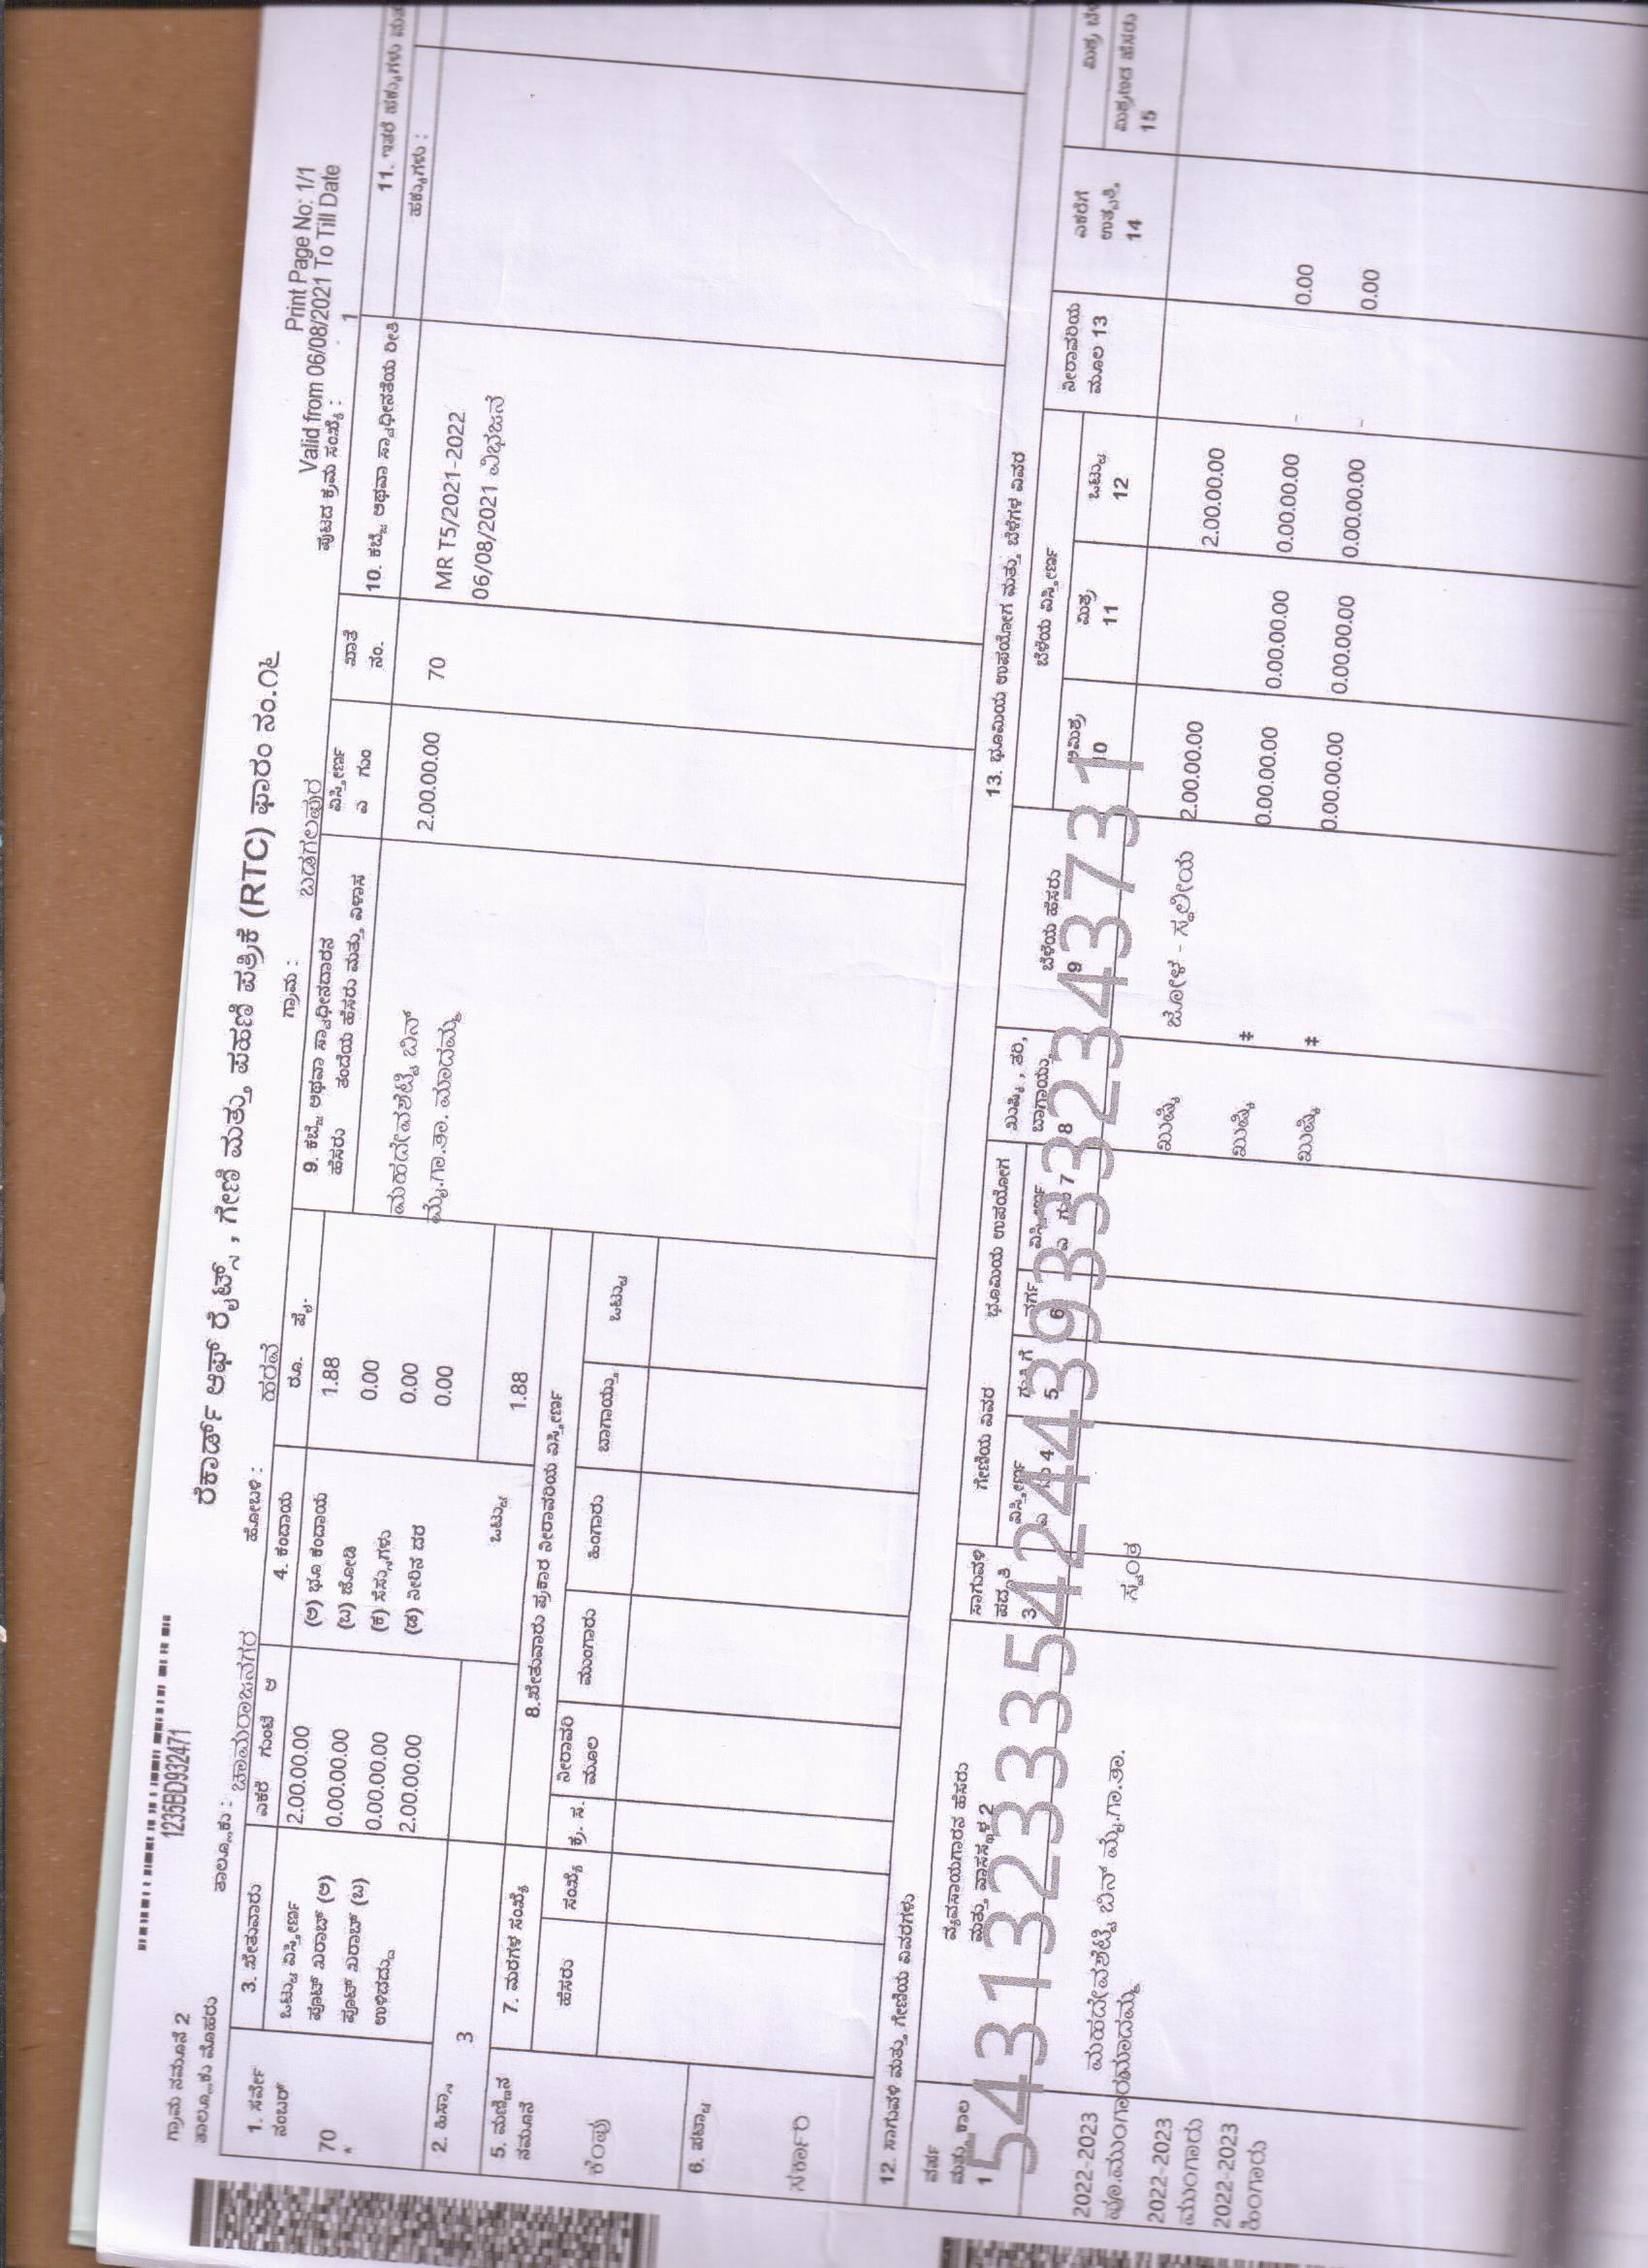 1235BD932471
ಗ್ರಾಮ ನಮೂನೆ 2
ತಾಲ್ಲೂಕು ಮೊಹರು
ರೆಕಾರ್ಡ್ ಆಫ್ ರೈಟ್ಸ್ , ಗೇಣಿ ಮತ್ತು ಪಹಣಿ ಪತ್ರಿಕೆ (RTC) ಫಾರಂ ನಂ.೧೬
Print Page No: 1/1
Valid from 06/08/2021 To Till Date
ತಾಲ್ಲೂಕು : ಚಾಮರಾಜನಗರ ಹೋಬಳಿ : ಹರವೆ ಗ್ರಾಮ : ಬಡಗಲಪುರ ಪುಟದ ಕ್ರಮ ಸಂಖ್ಯೆ : 1
1. ಸರ್ವೇ ನಂಬರ್
70
*
2. ಹಿಸ್ಸಾ
3
3. ಖೇತುವಾರು ಎಕರೆ ಗುಂಟೆ ಆ
ಒಟ್ಟು ವಿಸ್ತೀರ್ಣ 2.00.00.00
ಪೂಟ್ ಖರಾಬ್ (ಅ) 0.00.00.00
ಪೂಟ್ ಖರಾಬ್ (ಬ) 0.00.00.00
ಉಳಿದದ್ದು 2.00.00.00
4. ಕಂದಾಯ ರೂ. ಪೈ.
(ಅ) ಭೂ ಕಂದಾಯ 1.88
(ಬ) ಜೋಡಿ 0.00
(ಕ) ಸೆಸ್ಸುಗಳು 0.00
(ಡ) ನೀರಿನ ದರ 0.00
ಒಟ್ಟು 1.88
5. ಮಣ್ಣಿನ ನಮೂನೆ
ಕೆಂಪು
6. ಪಟ್ಟಾ
ಸರ್ಕಾರಿ
7. ಮರಗಳ ಸಂಖ್ಯೆ
ಹೆಸರು ಸಂಖ್ಯೆ
8.ಖೇತುವಾರು ಪ್ರಕಾರ ನೀರಾವರಿಯ ವಿಸ್ತೀರ್ಣ
ಕ್ರ. ಸ. ನೀರಾವರಿ ಮೂಲ ಮುಂಗಾರು ಹಿಂಗಾರು ಬಾಗಾಯ್ತು ಒಟ್ಟು
9. ಕಬ್ಜೆ ಅಥವಾ ಸ್ವಾಧೀನದಾರನ
ಹೆಸರು ತಂದೆಯ ಹೆಸರು ಮತ್ತು ವಿಳಾಸ
ವಿಸ್ತೀರ್ಣ
ಎ ಗುಂ
ಖಾತೆ
ನಂ.
ಮಹದೇವಶೆಟ್ಟಿ ಬಿನ್ 2.00.00.00 70
ಮ್ಯೆ.ಗಾ.ತಾ. ಮಾದಮ್ಮ
10. ಕಬ್ಜೆ ಅಥವಾ ಸ್ವಾಧೀನತೆಯ ರೀತಿ
MR T5/2021-2022
06/08/2021 ವಿಭಜನೆ
11. ಇತರೆ ಹಕ್ಕುಗಳು
ಹಕ್ಕುಗಳು :
12. ಸಾಗುವಳಿ ಮತ್ತು ಗೇಣಿಯ ವಿವರಗಳು
13. ಭೂಮಿಯ ಉಪಯೋಗ ಮತ್ತು ಬೆಳೆಗಳ ವಿವರ
ವರ್ಷ ಮತ್ತು ಕಾಲ 1
ವ್ಯವಸಾಯಗಾರನ ಹೆಸರು ಮತ್ತು ವಾಸಸ್ಥಳ 2
ಸಾಗುವಳಿ ಪದ್ಧತಿ 3
ಗೇಣಿಯ ವಿವರ
ವಿಸ್ತೀರ್ಣ 4
ಗುತ್ತಿಗೆ 5
ಭೂಮಿಯ ಉಪಯೋಗ
ವರ್ಗ 6
ವಿಸ್ತೀರ್ಣ
ಎ ಗುಂ 7
ಖುಷ್ಕಿ , ತರಿ, ಬಾಗಾಯ್ತು 8
ಬೆಳೆಯ ಹೆಸರು 9
ಬೆಳೆಯ ವಿಸ್ತೀರ್ಣ
ಅಮಿಶ್ರ 10
ಮಿಶ್ರ 11
ಒಟ್ಟು 12
ನೀರಾವರಿಯ ಮೂಲ 13
ಎಕರೆಗೆ ಉತ್ಪತ್ತಿ 14
ಮಿಶ್ರಣದ ಹೆಸರು 15
2022-2023 ಮಹದೇವಶೆಟ್ಟಿ ಬಿನ್ ಮ್ಯೆ.ಗಾ.ತಾ. ಸ್ವಂತ ಖುಷ್ಕಿ ಜೋಳ - ಸ್ಥಳೀಯ 2.00.00.00 2.00.00.00
ಪೂ.ಮುಂಗಾರು ಮಾದಮ್ಮ
2022-2023 ಖುಷ್ಕಿ # 0.00.00.00 0.00.00.00 0.00.00.00 - 0.00
ಮುಂಗಾರು
2022-2023 ಖುಷ್ಕಿ # 0.00.00.00 0.00.00.00 0.00.00.00 - 0.00
ಹಿಂಗಾರು